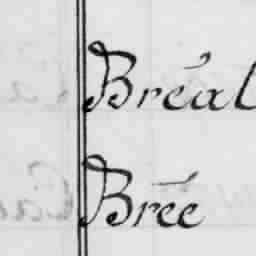 Bréal
Brée